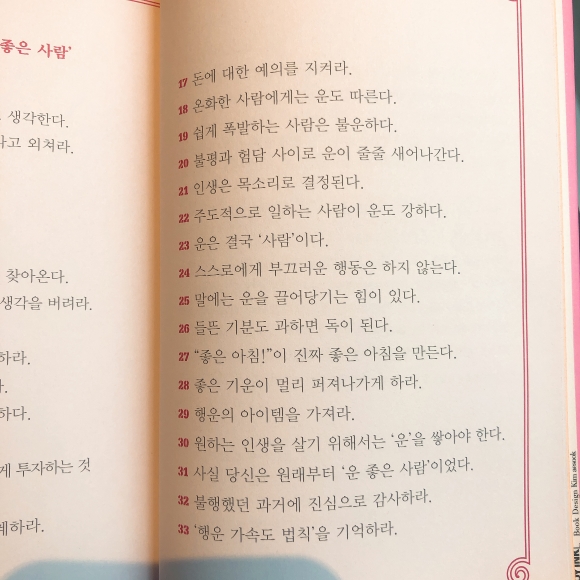 좋은 사람'
생각한다.
라고 외쳐라.
찾아온다.
생각을 버려라.
하라.
하다.
게 투자하는 것
계하라.
17 돈에 대한 예의를 지켜라.
18 온화한 사람에게는 운도 따른다.
19 쉽게 폭발하는 사람은 불운하다.
20 불평과 험담 사이로 운이 줄줄 새어나간다.
21 인생은 목소리로 결정된다.
22 주도적으로 일하는 사람이 운도 강하다.
23 운은 결국 '사람'이다.
24 스스로에게 부끄러운 행동은 하지 않는다.
25 말에는 운을 끌어당기는 힘이 있다.
26 들뜬 기분도 과하면 독이 된다.
27 "좋은 아침!"이 진짜 좋은 아침을 만든다.
28 좋은 기운이 멀리 퍼져나가게 하라.
29 행운의 아이템을 가져라.
30 원하는 인생을 살기 위해서는 '운'을 쌓아야 한다.
31 사실 당신은 원래부터 '운 좋은 사람'이었다.
32 불행했던 과거에 진심으로 감사하라.
33 '행운 가속도 법칙'을 기억하라.
Book Design Kim aesook